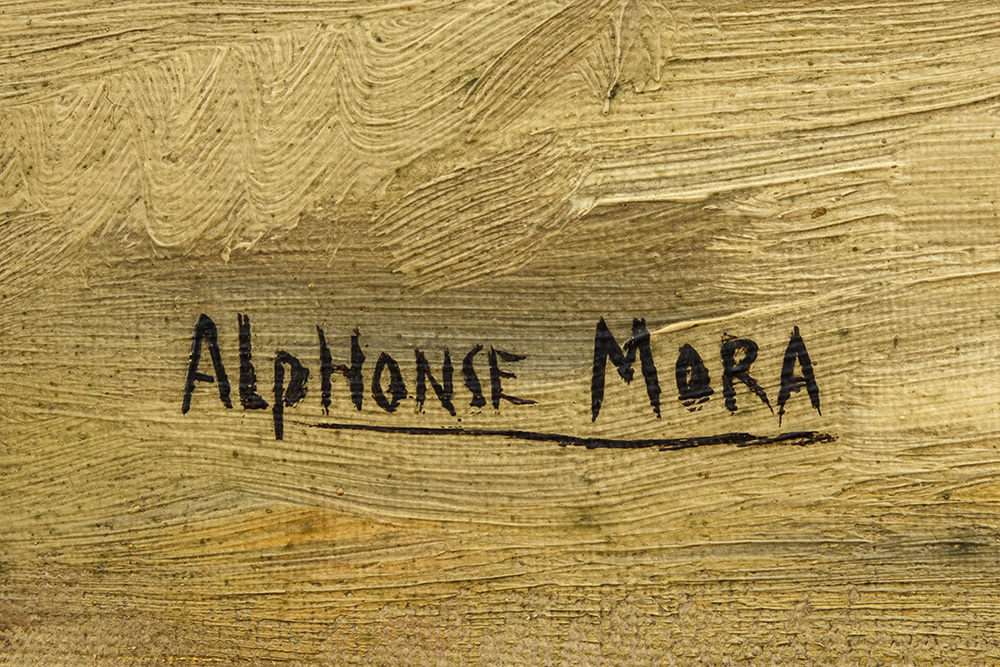 Alphonse Mora